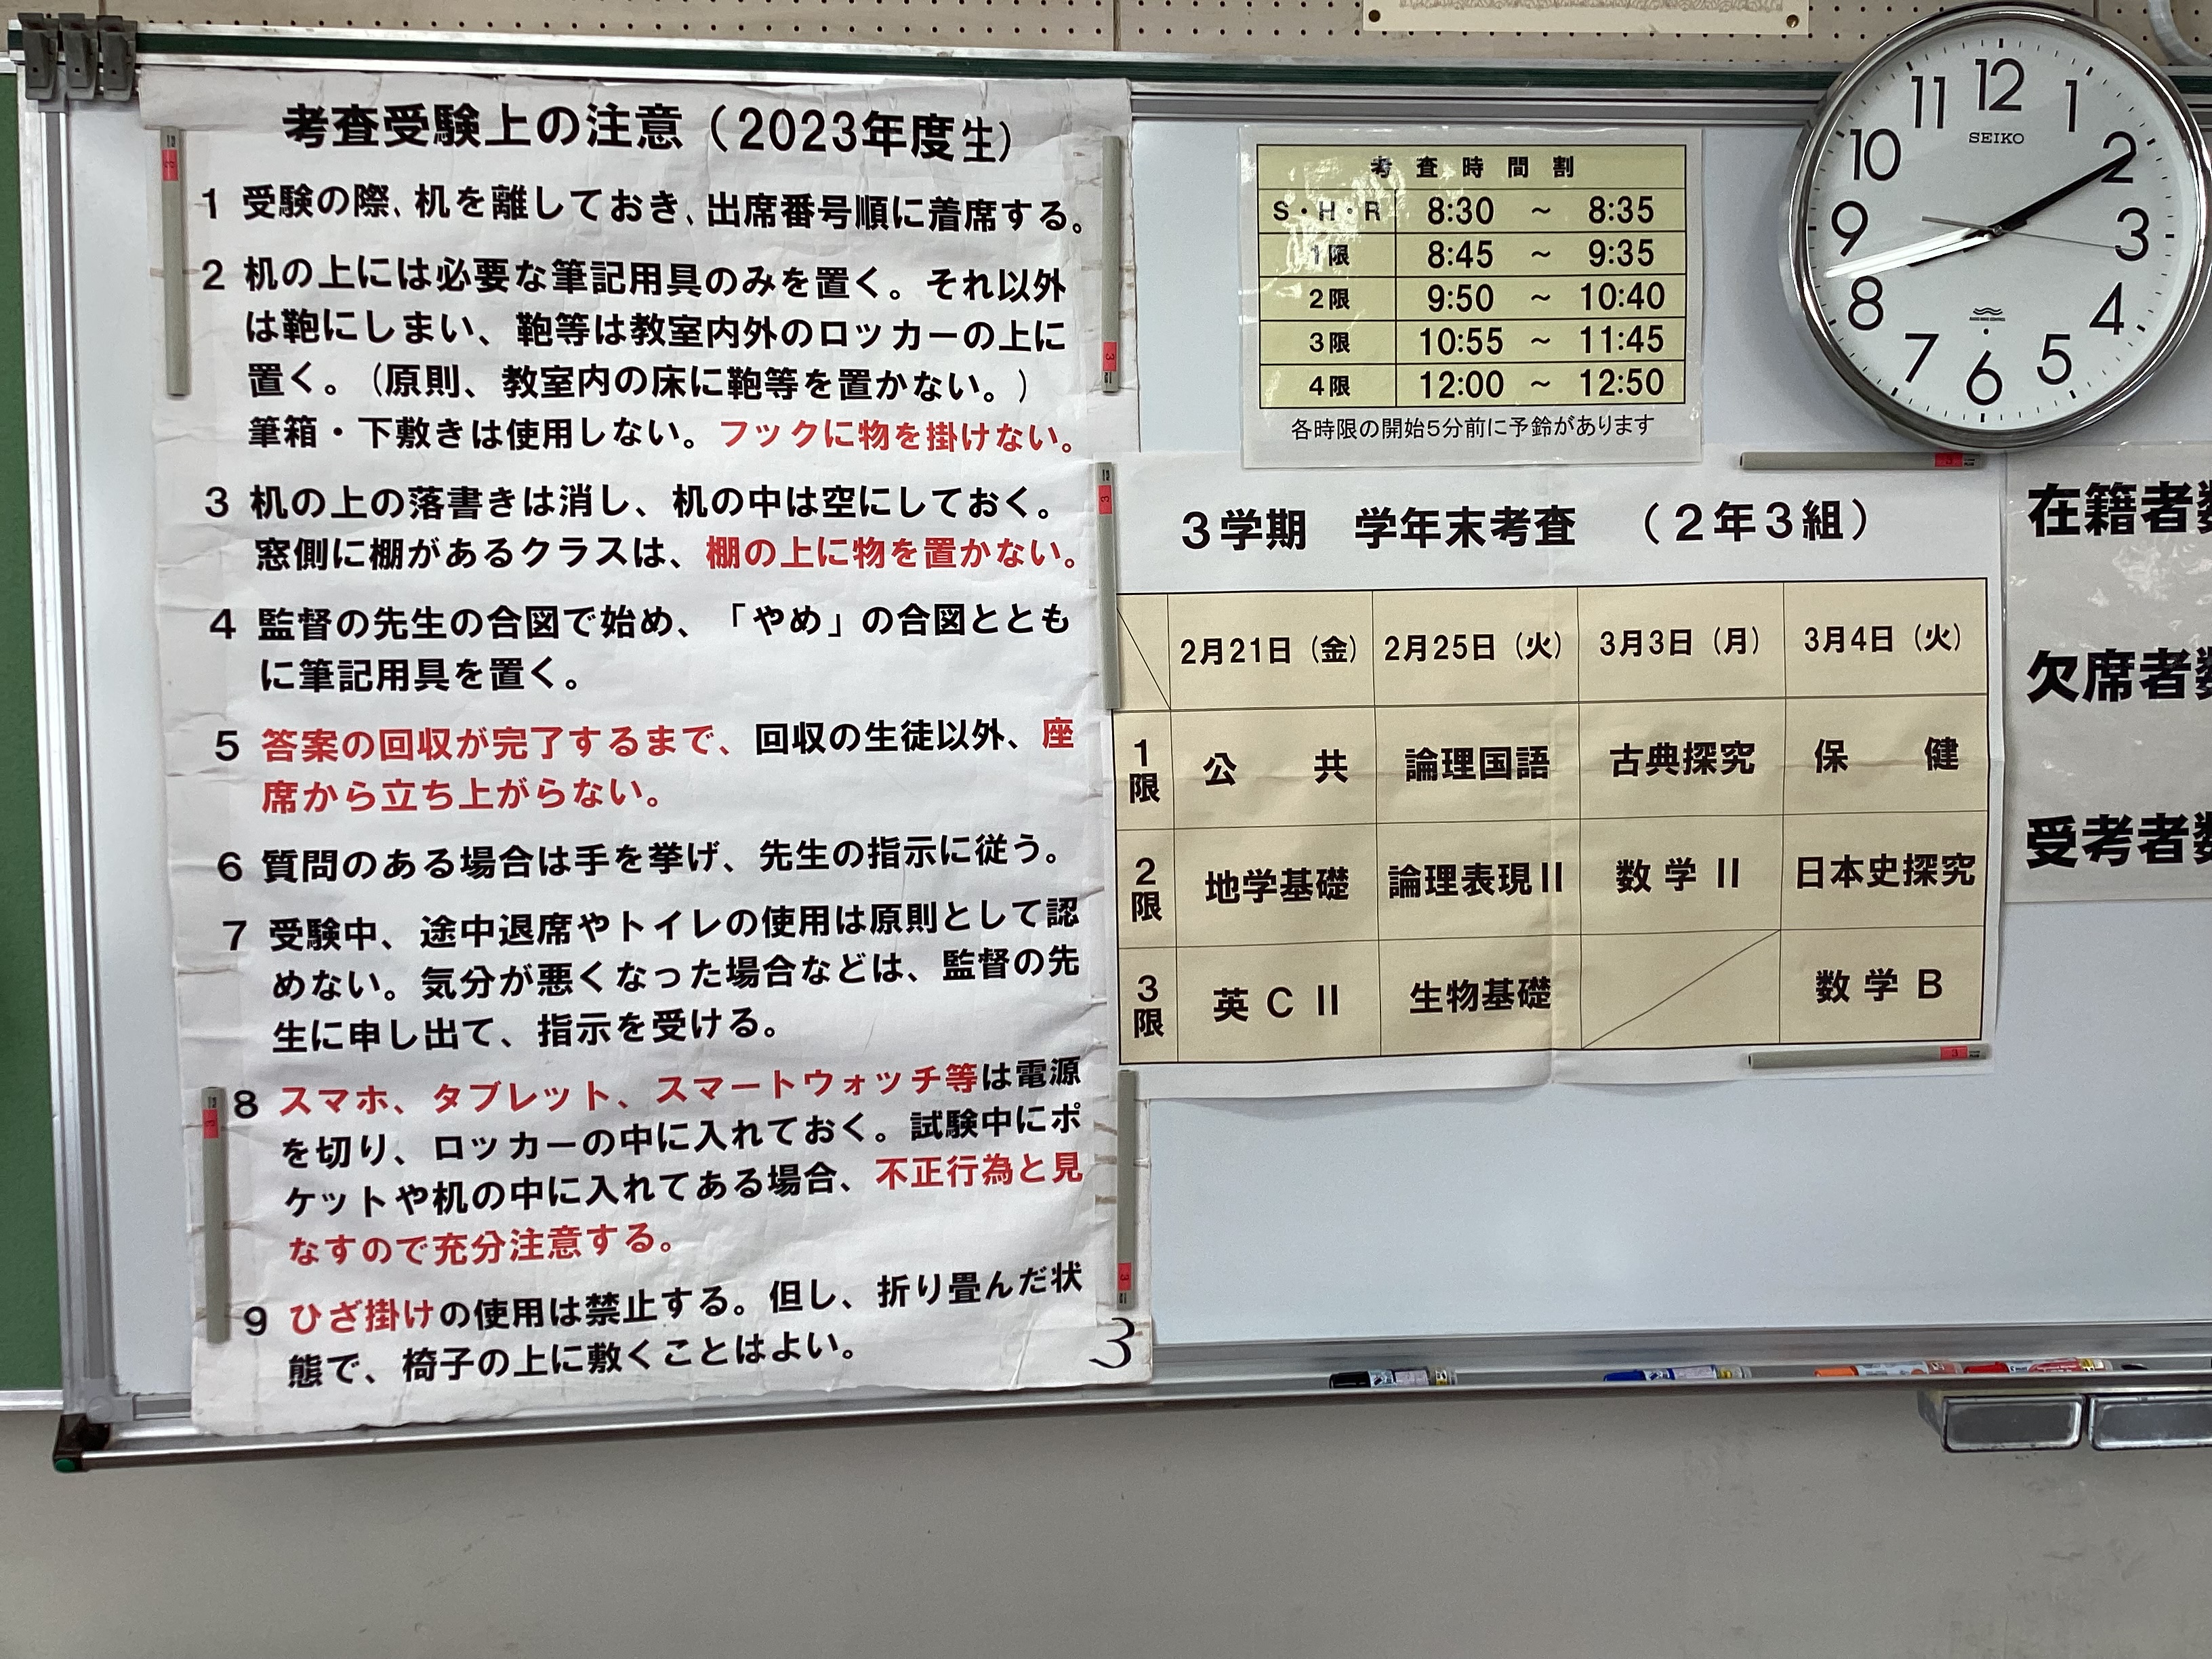 考査受験上の注意（2023年度生）
1 受験の際、机を離しておき、出席番号順に着席する。
2 机の上には必要な筆記用具のみを置く。それ以外
は鞄にしまい、鞄等は教室内外のロッカーの上に
置く。（原則、教室内の床に鞄等を置かない。）
筆箱・下敷きは使用しない。フックに物を掛けない。
3 机の上の落書きは消し、机の中は空にしておく。
窓側に棚があるクラスは、棚の上に物を置かない。
4 監督の先生の合図で始め、「やめ」の合図ととも
に筆記用具を置く。
5 答案の回収が完了するまで、回収の生徒以外、座
席から立ち上がらない。
6 質問のある場合は手を挙げ、先生の指示に従う。
7 受験中、途中退席やトイレの使用は原則として認
めない。気分が悪くなった場合などは、監督の先
生に申し出て、指示を受ける。
8 スマホ、タブレット、スマートウォッチ等は電源
を切り、ロッカーの中に入れておく。試験中にポ
ケットや机の中に入れてある場合、不正行為と見
なすので充分注意する。
9 ひざ掛けの使用は禁止する。但し、折り畳んだ状
態で、椅子の上に敷くことはよい。
3
考査時間割
S・H・R 8:30 ～ 8:35
1限 8:45 ～ 9:35
2限 9:50 ～ 10:40
3限 10:55 ～ 11:45
4限 12:00 ～ 12:50
各時限の開始5分前に予鈴があります
3学期 学年末考査 （2年3組）
2月21日（金） 2月25日（火） 3月3日（月） 3月4日（火）
1限 公共 論理国語 古典探究 保健
2限 地学基礎 論理表現II 数学II 日本史探究
3限 英CII 生物基礎 数学B
12
1
2
3
4
5
6
7
8
9
10
11
SEIKO
在籍者数
欠席者数
受考者数